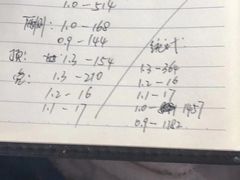 1.0-514
两侧: 1.0-168
0.9-144
顶: 1.3-154
宽: 1.3-210
1.2-16
1.1-17
1.3-364
1.2-16
1.1-17
1.0- 1437
0.9-1382